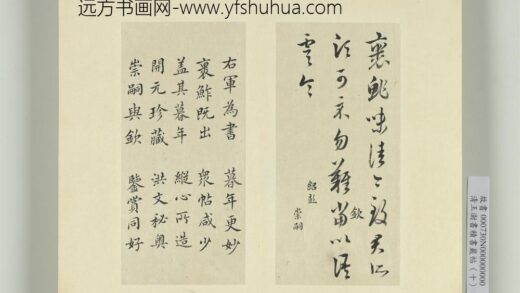 遠方书画网-www.yfshuhua.com
裹鮓味佳今致君所
須可示勿難當以語
虞令
欽
崇嗣
右軍為書 暮年更妙
裹鮓既出 衆帖咸少
蓋其暮年 縱心所造
開元珍藏 洪文秘奧
崇嗣與欽 鑒賞同好
故書 000730N00000000
清王澍書積書巖帖(十)